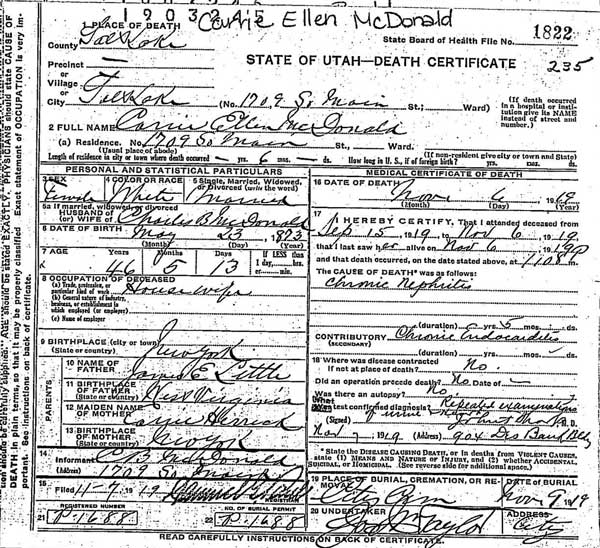 190324
Carrie Ellen McDonald
1 PLACE OF DEATH
County Salt Lake
State Board of Health File No. 1822
Precinct
or
Village
STATE OF UTAH—DEATH CERTIFICATE
235
City Salt Lake (No. 1709 So. Main St.; Ward)
(If death occurred in a hospital or institution give its NAME instead of street and number.)
2 FULL NAME Carrie Ellen McDonald
(a) Residence. No. 1709 So Main St., Ward.
(Usual place of abode) (If non-resident give city or town and State)
Length of residence in city or town where death occurred — yrs. 6 mos. — ds. How long in U. S., if of foreign birth? yrs. mos. ds.
PERSONAL AND STATISTICAL PARTICULARS
3 SEX Female
4 COLOR OR RACE White
5 Single, Married, Widowed, or Divorced (write the word) Married
5a If married, widowed or divorced
HUSBAND of
(or) WIFE of Charles B. McDonald
6 DATE OF BIRTH May 23, 1873
(Month) (Day) (Year)
7 AGE 46 5 13
If LESS than 1 day, hrs. or min.
8 OCCUPATION OF DECEASED
(a) Trade, profession, or particular kind of work Housewife
(b) General nature of industry, business, or establishment in which employed (or employer)
(c) Name of employer
9 BIRTHPLACE (city or town)
(State or country) New York
PARENTS
10 NAME OF FATHER James E Little
11 BIRTHPLACE OF FATHER West Virginia
(State or country)
12 MAIDEN NAME OF MOTHER Herrick
13 BIRTHPLACE OF MOTHER New York
(State or country)
14 Informant C B McDonald
(Address) 1709 So Main St
15 Filed 11-7 1919
REGISTRAR
REGISTERED NUMBER
21 P-1688
NO. OF BURIAL PERMIT
22 P-1688
MEDICAL CERTIFICATE OF DEATH
16 DATE OF DEATH Nov 6 1919
(Month) (Day) (Year)
17 I HEREBY CERTIFY, That I attended deceased from
Sep 15, 1919 to Nov 6, 1919
that I last saw her alive on Nov 6 1919
and that death occurred, on the date stated above, at m.
The CAUSE OF DEATH* was as follows:
Chronic Nephritis
(duration) yrs. 5 mos. ds.
CONTRIBUTORY Chronic Endocarditis
(SECONDARY)
(duration) yrs. mos. ds.
18 Where was disease contracted
If not at place of death? No.
Did an operation precede death? No. Date of —
Was there an autopsy? No
What test confirmed diagnosis? Repeated examinations
of urine
(Signed) M. D.
Nov 7, 1919
* State the DISEASE CAUSING DEATH, or in deaths from VIOLENT CAUSES, state (1) MEANS AND NATURE OF INJURY, and (2) whether ACCIDENTAL, SUICIDAL, or HOMICIDAL. (See reverse side for additional space.)
19 PLACE OF BURIAL, CREMATION, OR REMOVAL
City Cem
Date of Burial
Nov 9 1919
20 UNDERTAKER Taylor
ADDRESS City
READ CAREFULLY INSTRUCTIONS ON BACK OF CERTIFICATE.